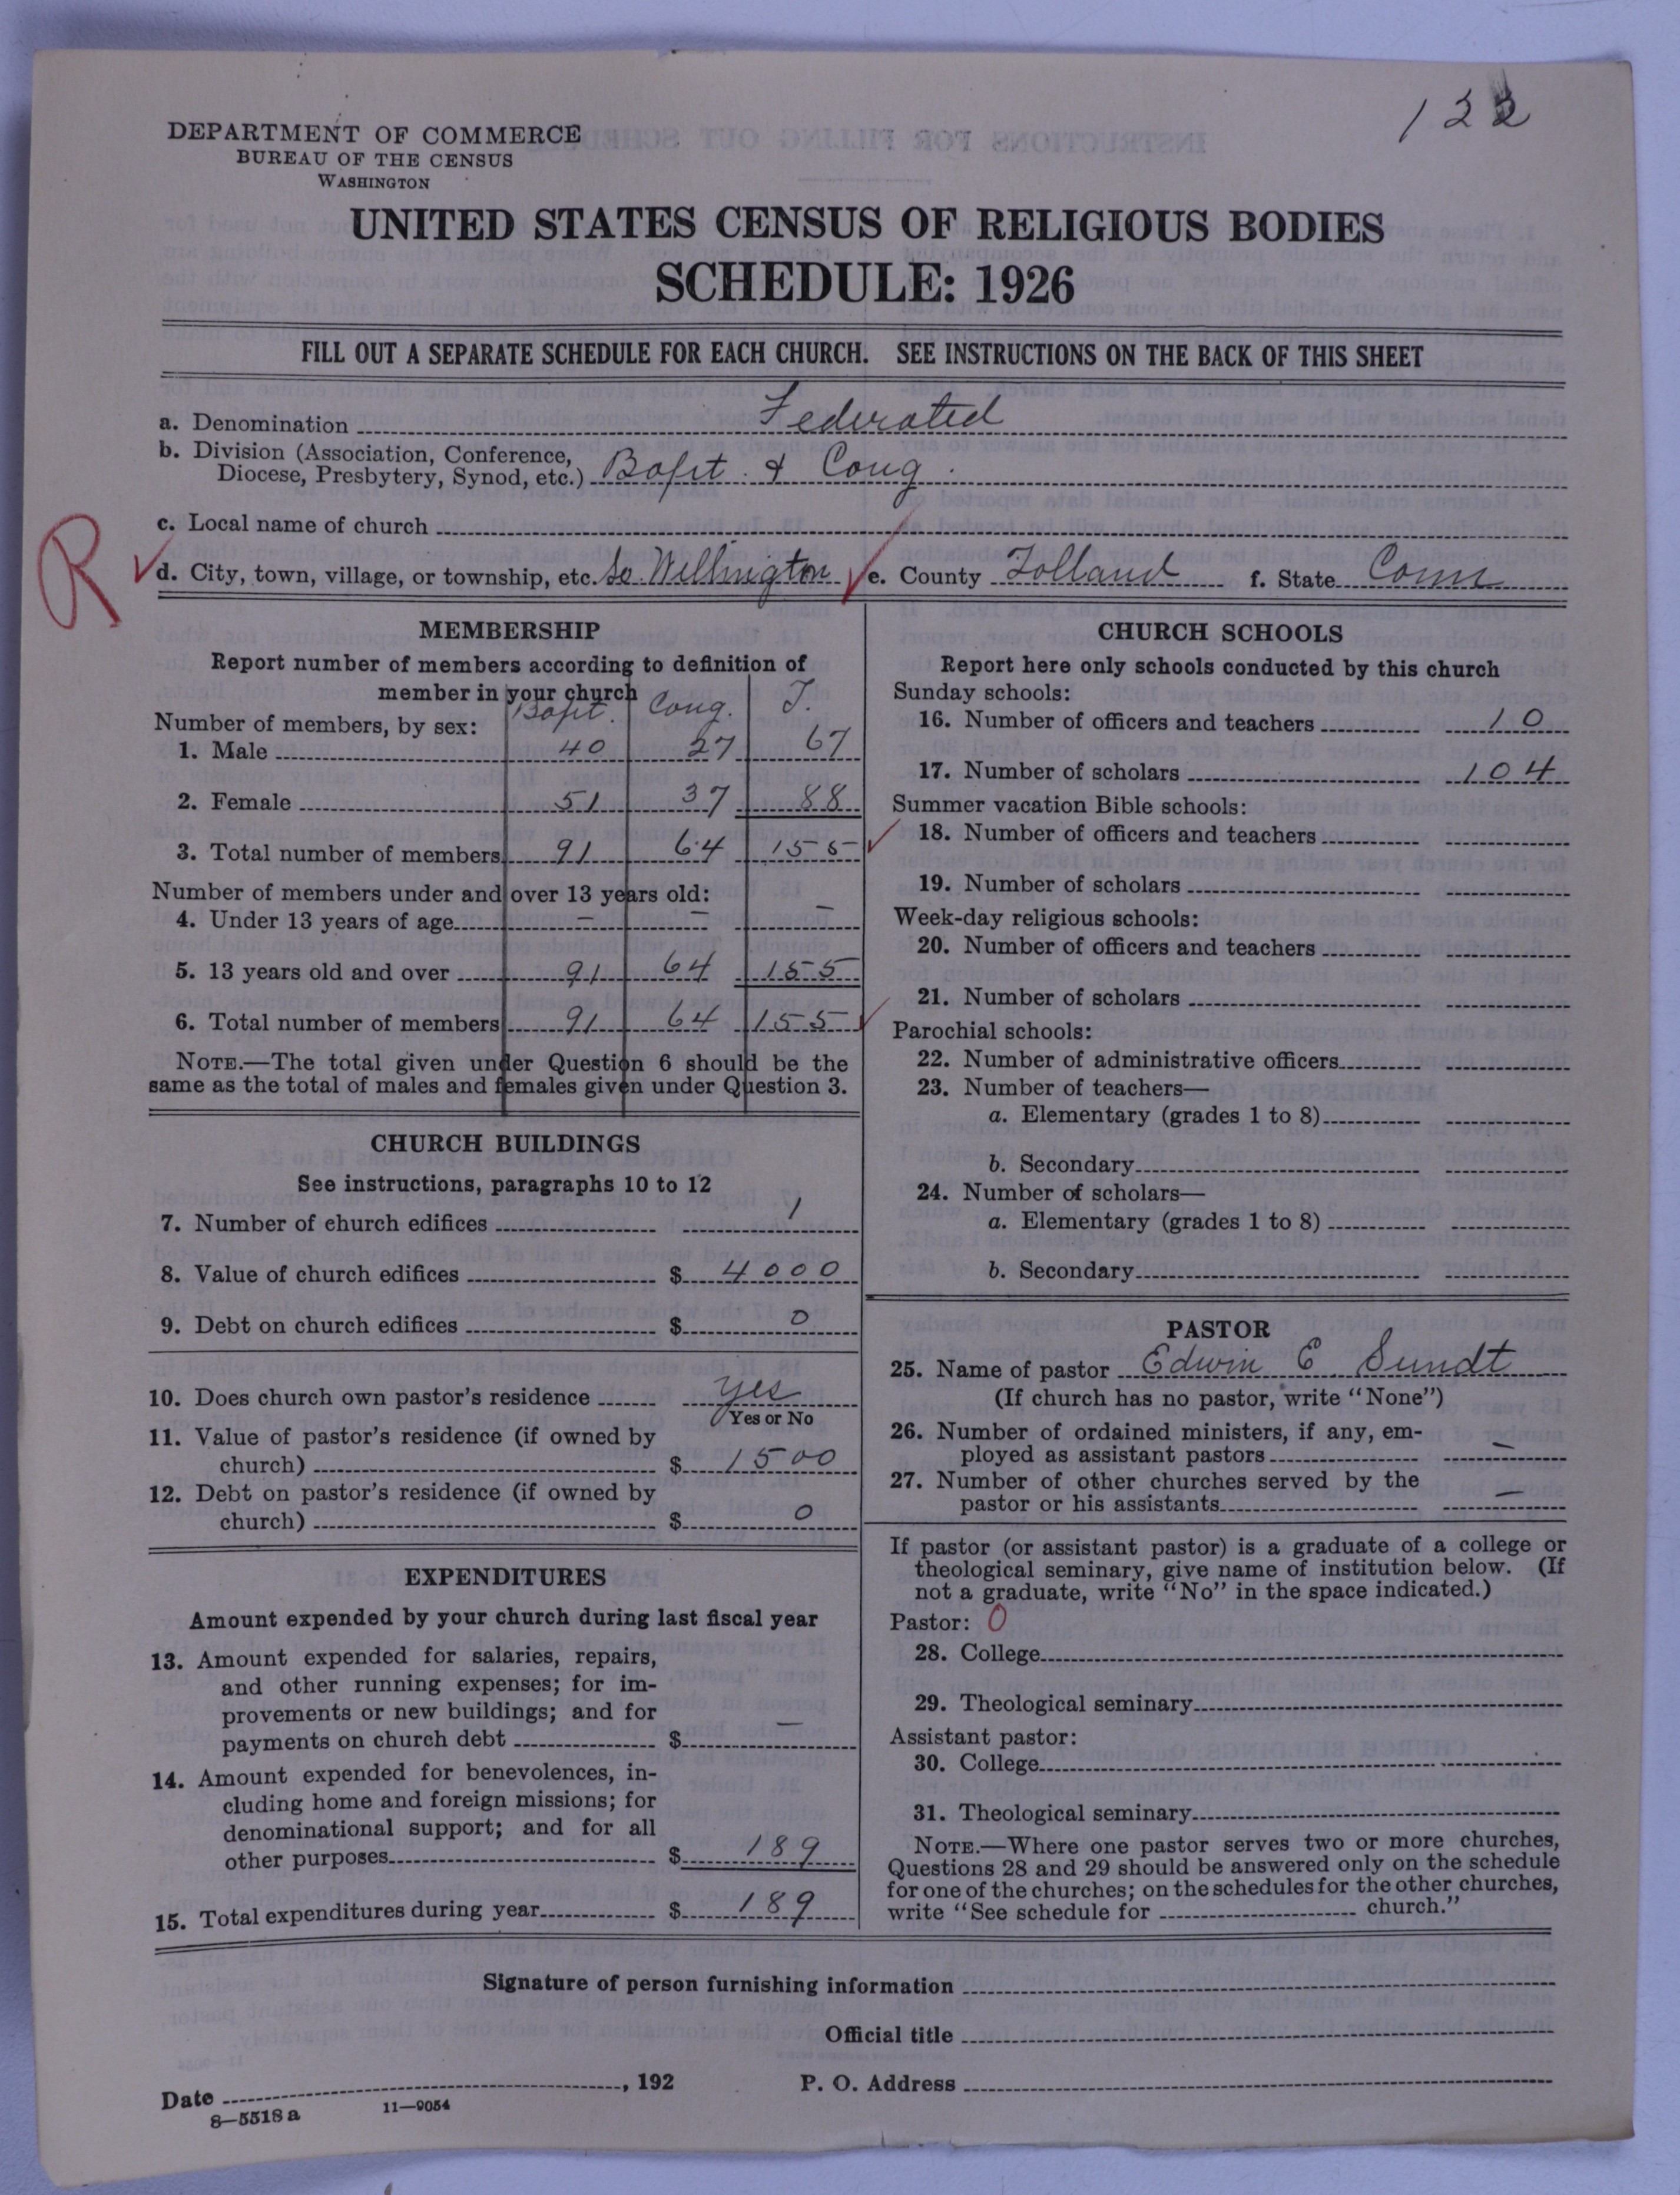 122
DEPARTMENT OF COMMERCE
BUREAU OF THE CENSUS
WASHINGTON
UNITED STATES CENSUS OF RELIGIOUS BODIES
SCHEDULE: 1926
FILL OUT A SEPARATE SCHEDULE FOR EACH CHURCH. SEE INSTRUCTIONS ON THE BACK OF THIS SHEET
a. Denomination Federated
b. Division (Association, Conference,
Diocese, Presbytery, Synod, etc.) Bapt. & Cong.
c. Local name of church
R
d. City, town, village, or township, etc. So. Wellington e. County Tolland f. State Conn
MEMBERSHIP
Report number of members according to definition of
member in your church
Bapt. Cong. T.
Number of members, by sex:
1. Male 40 27 67
2. Female 51 37 88
3. Total number of members 91 64 155
Number of members under and over 13 years old:
4. Under 13 years of age – – –
5. 13 years old and over 91 64 155
6. Total number of members 91 64 155
NOTE.—The total given under Question 6 should be the
same as the total of males and females given under Question 3.
CHURCH BUILDINGS
See instructions, paragraphs 10 to 12
7. Number of church edifices 1
8. Value of church edifices $ 4000
9. Debt on church edifices $ 0
10. Does church own pastor's residence yes
Yes or No
11. Value of pastor's residence (if owned by
church) $ 1500
12. Debt on pastor's residence (if owned by
church) $ 0
EXPENDITURES
Amount expended by your church during last fiscal year
13. Amount expended for salaries, repairs,
and other running expenses; for im-
provements or new buildings; and for
payments on church debt $ –
14. Amount expended for benevolences, in-
cluding home and foreign missions; for
denominational support; and for all
other purposes $ 189
15. Total expenditures during year $ 189
CHURCH SCHOOLS
Report here only schools conducted by this church
Sunday schools:
16. Number of officers and teachers 10
17. Number of scholars 104
Summer vacation Bible schools:
18. Number of officers and teachers
19. Number of scholars
Week-day religious schools:
20. Number of officers and teachers
21. Number of scholars
Parochial schools:
22. Number of administrative officers
23. Number of teachers—
a. Elementary (grades 1 to 8)
b. Secondary
24. Number of scholars—
a. Elementary (grades 1 to 8)
b. Secondary
PASTOR
25. Name of pastor Edwin E. Sundt
(If church has no pastor, write "None")
26. Number of ordained ministers, if any, em-
ployed as assistant pastors –
27. Number of other churches served by the
pastor or his assistants –
If pastor (or assistant pastor) is a graduate of a college or
theological seminary, give name of institution below. (If
not a graduate, write "No" in the space indicated.)
Pastor: 0
28. College
29. Theological seminary
Assistant pastor:
30. College
31. Theological seminary
NOTE.—Where one pastor serves two or more churches,
Questions 28 and 29 should be answered only on the schedule
for one of the churches; on the schedules for the other churches,
write "See schedule for church."
Signature of person furnishing information
Official title
Date , 192 P. O. Address
8—5518a 11—9054